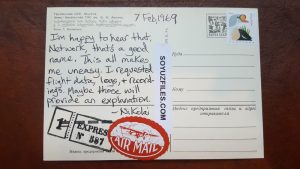 7 Feb 1969
I'm happy to hear that,
Network, that's a good
name. This all makes
me uneasy. I requested
flight data, logs, + record-
ings. Maybe those will
provide an explanation.
- Nikolai
SOYUZFILES.COM
Куда
Кому
EXPRES
Nº 567
AIR MAIL